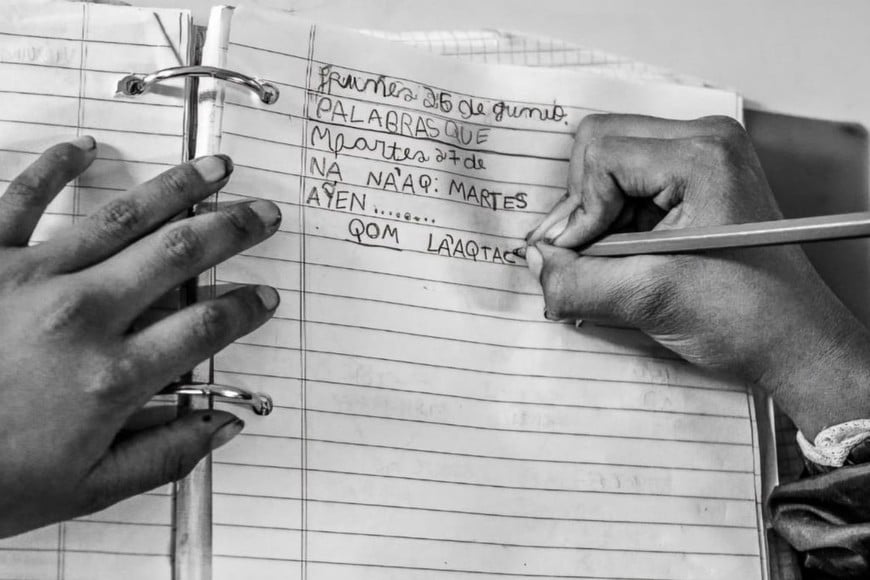 Lunes 26 de junio.
PALABRAS QUE
Martes 27 de
NA NA'AQ: MARTES
AYEN ........
QOM LA'AQTAC